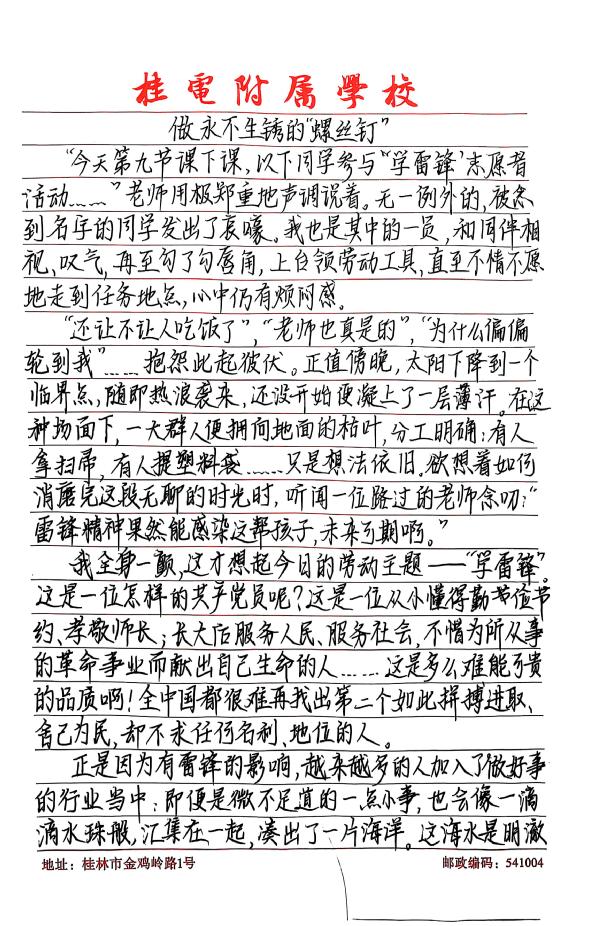 桂電附属學校
做永不生锈的“螺丝钉”
“今天第九节课下课，以下同学参与“学雷锋’志愿者
活动……”老师用极郑重地声调说着。无一例外的，被念
到名字的同学发出了哀嚎。我也是其中的一员，和同伴相
视、叹气，再至勾了勾唇角，上台领劳动工具，直至不情不愿
地走到任务地点，心中仍有烦闷感。
“还让不让人吃饭了”，“老师也真是的”，“为什么偏偏
轮到我”……抱怨此起彼伏。正值傍晚，太阳下降到一个
临界点，随即热浪袭来，还没开始便凝上了一层薄汗。在这
种场面下，一大群人便拥向地面的枯叶，分工明确：有人
拿扫帚，有人提塑料袋……只是想法依旧。欲想着如何
消磨完这段无聊的时光时，听闻一位路过的老师念叨：“
雷锋精神果然能感染这帮孩子，未来可期啊。”
我全身一颤，这才想起今日的劳动主题——“学雷锋”。
这是一位怎样的共产党员呢？这是一位从小懂得勤节俭节
约、孝敬师长；长大后服务人民、服务社会，不惜为所从事
的革命事业而献出自己生命的人……这是多么难能可贵
的品质啊！全中国都很难再找出第二个如此拼搏进取、
舍己为民，却不求任何名利、地位的人。
正是因为有雷锋的影响，越来越多的人加入了做好事
的行业当中：即便是微不足道的一点小事，也会像一滴
滴水珠般，汇集在一起，凑出了一片海洋。这海水是明澈
地址：桂林市金鸡岭路1号
邮政编码：541004